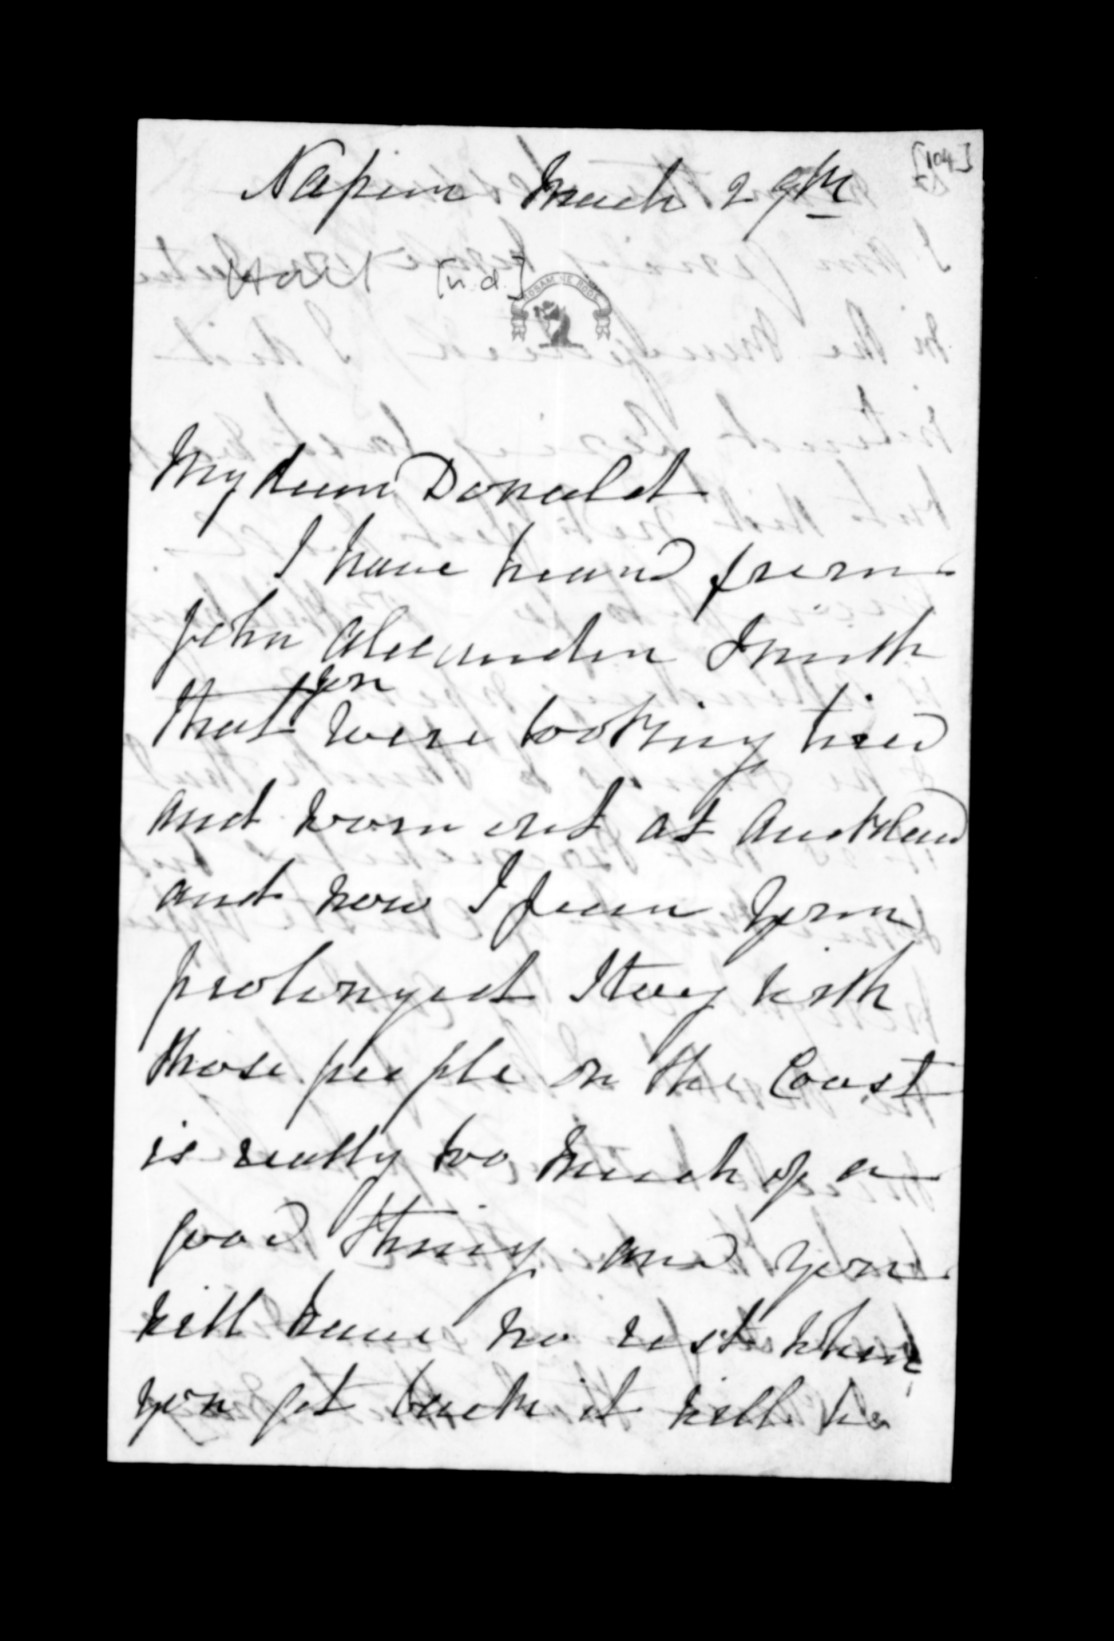 [104]
Napier March 29th
Hart [n.d.]
My dear Donald
I have heard from
John Alexander Smith
that you were looking tired
and worn out at Auckland
and now I fear your
prolonged stay with
those people on the Coast
is really too much of a
good thing and you
will have no rest when
you get back it will be